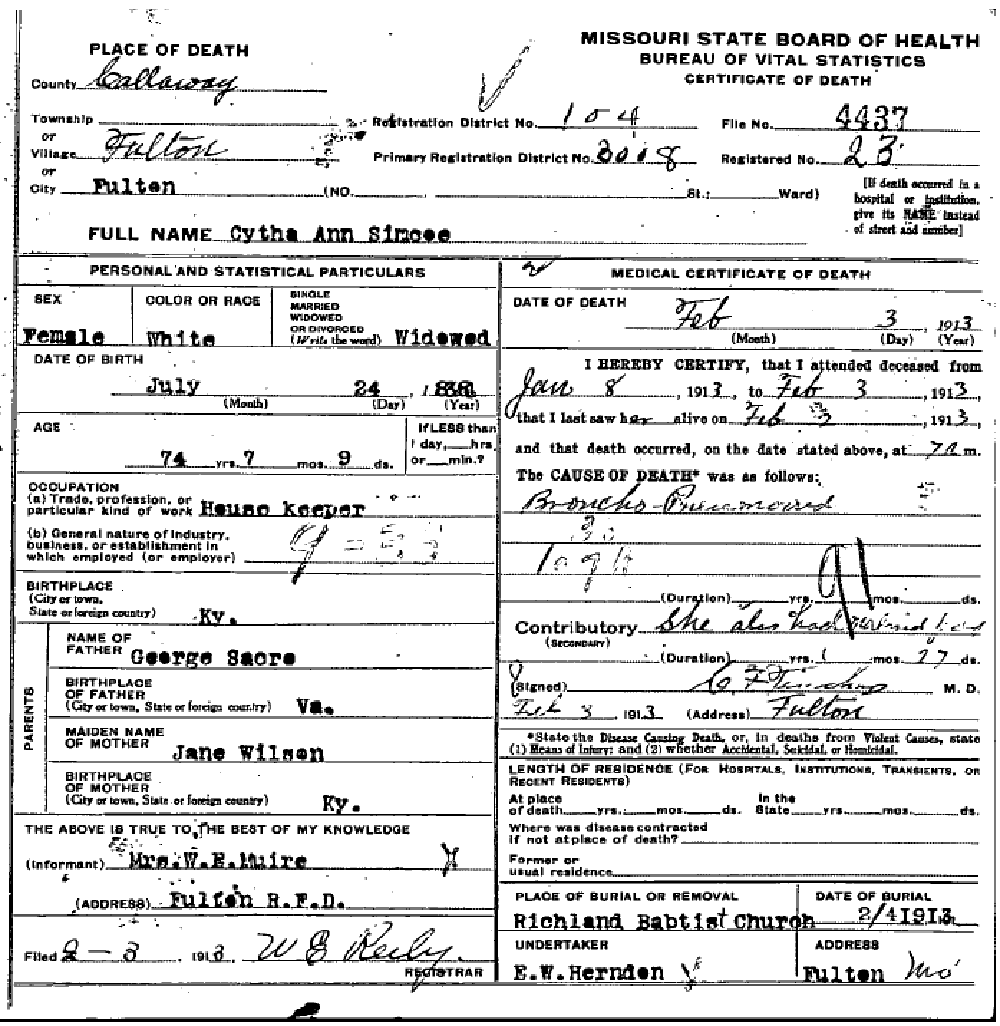 MISSOURI STATE BOARD OF HEALTH
BUREAU OF VITAL STATISTICS
CERTIFICATE OF DEATH
PLACE OF DEATH
County Callaway
Township
or
Village Fulton
or
City Fulton (NO. St.; Ward)
Registration District No. 104 File No. 4437
Primary Registration District No. 3018 Registered No. 23
[If death occurred in a
hospital or institution,
give its NAME instead
of street and number]
FULL NAME Cytha Ann Simcoe
PERSONAL AND STATISTICAL PARTICULARS
SEX
Female
COLOR OR RACE
White
SINGLE
MARRIED
WIDOWED
OR DIVORCED
(Write the word) Widowed
DATE OF BIRTH
July 24
(Month) (Day) (Year)
AGE
74 yrs. 7 mos. 9 ds.
If LESS than
1 day, hrs.
or min.?
OCCUPATION
(a) Trade, profession, or
particular kind of work House keeper
(b) General nature of industry,
business, or establishment in
which employed (or employer)
BIRTHPLACE
(City or town,
State or foreign country) Ky.
PARENTS
NAME OF
FATHER George Sacre
BIRTHPLACE
OF FATHER
(City or town, State or foreign country) Va.
MAIDEN NAME
OF MOTHER
Jane Wilson
BIRTHPLACE
OF MOTHER
(City or town, State or foreign country) Ky.
THE ABOVE IS TRUE TO THE BEST OF MY KNOWLEDGE
(Informant) Mrs. W.E. Muire
(ADDRESS) Fulton R.F.D.
Filed 2-3 1913 W E Reily
REGISTRAR
MEDICAL CERTIFICATE OF DEATH
DATE OF DEATH
Feb 3, 1913
(Month) (Day) (Year)
I HEREBY CERTIFY, that I attended deceased from
Jan 8, 1913, to Feb 3 1913
that I last saw her alive on Feb 3, 1913
and that death occurred, on the date stated above, at m.
The CAUSE OF DEATH* was as follows:
Broncho-
(Duration) yrs. mos. ds.
Contributory She also had
(SECONDARY)
(Duration) yrs. 1 mos. 27 ds.
(Signed) C F M. D.
Feb 3 1913 (Address) Fulton
*State the Disease Causing Death, or, in deaths from Violent Causes, state
(1) Means of Injury; and (2) whether Accidental, Suicidal, or Homicidal.
LENGTH OF RESIDENCE (FOR HOSPITALS, INSTITUTIONS, TRANSIENTS, OR
RECENT RESIDENTS)
At place In the
of death yrs. mos. ds. State yrs. mos. ds.
Where was disease contracted
if not at place of death?
Former or
usual residence
PLACE OF BURIAL OR REMOVAL
Richland Baptist Church
DATE OF BURIAL
2/4 1913
UNDERTAKER
E.W. Herndon
ADDRESS
Fulton Mo